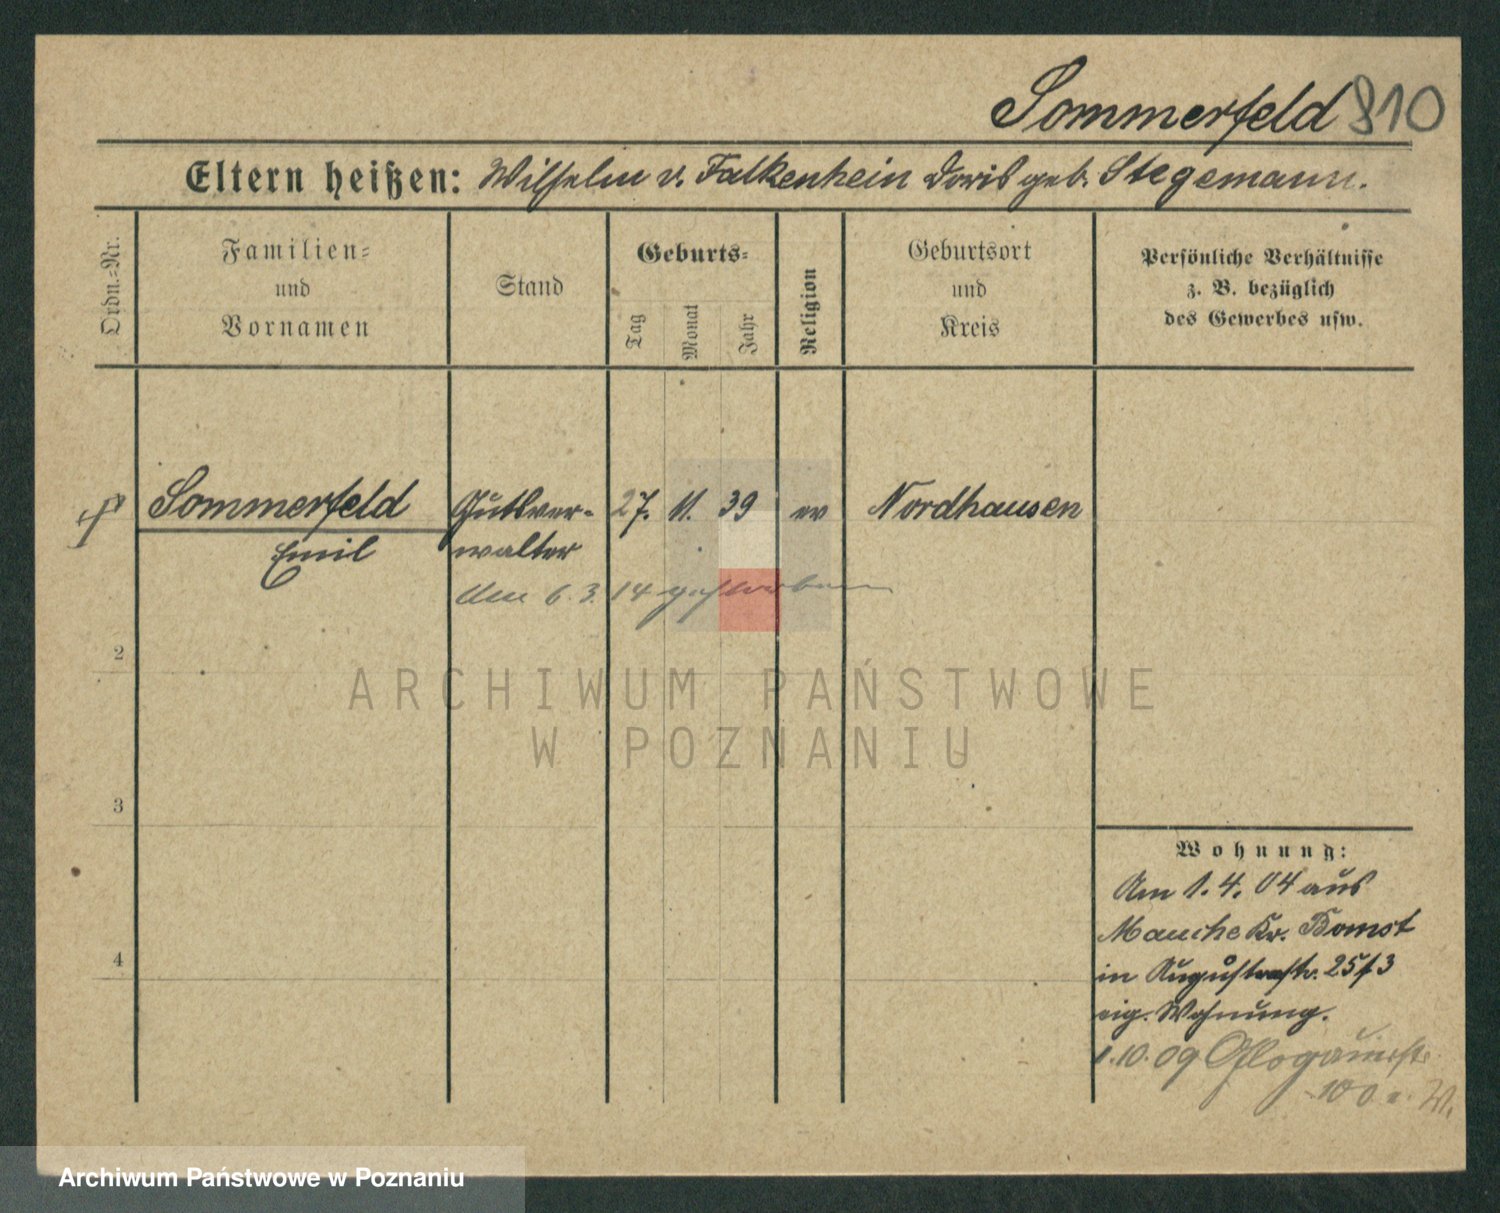 Sommerfeld 810
Eltern heißen: Wilhelm v. Falkenhein Doris geb. Stegemann.
Ordn.=Nr.
Familien=
und
Vornamen
Stand
Geburts=
Tag
Monat
Jahr
Religion
Geburtsort
und
Kreis
Persönliche Verhältnisse
z. B. bezüglich
des Gewerbes usw.
Sommerfeld
Emil
Gutsver-
walter
27. 11. 39 ev Nordhausen
Am 6. 3. 14 gestorben
2
3
4
Wohnung:
Am 1. 4. 04 aus
Mauche Kr. Bomst
in Augustastr. 25/3
eig. Wohnung.
1. 10. 09 Glogauerstr.
100 e. W.
ARCHIWUM PAŃSTWOWE
W POZNANIU
Archiwum Państwowe w Poznaniu